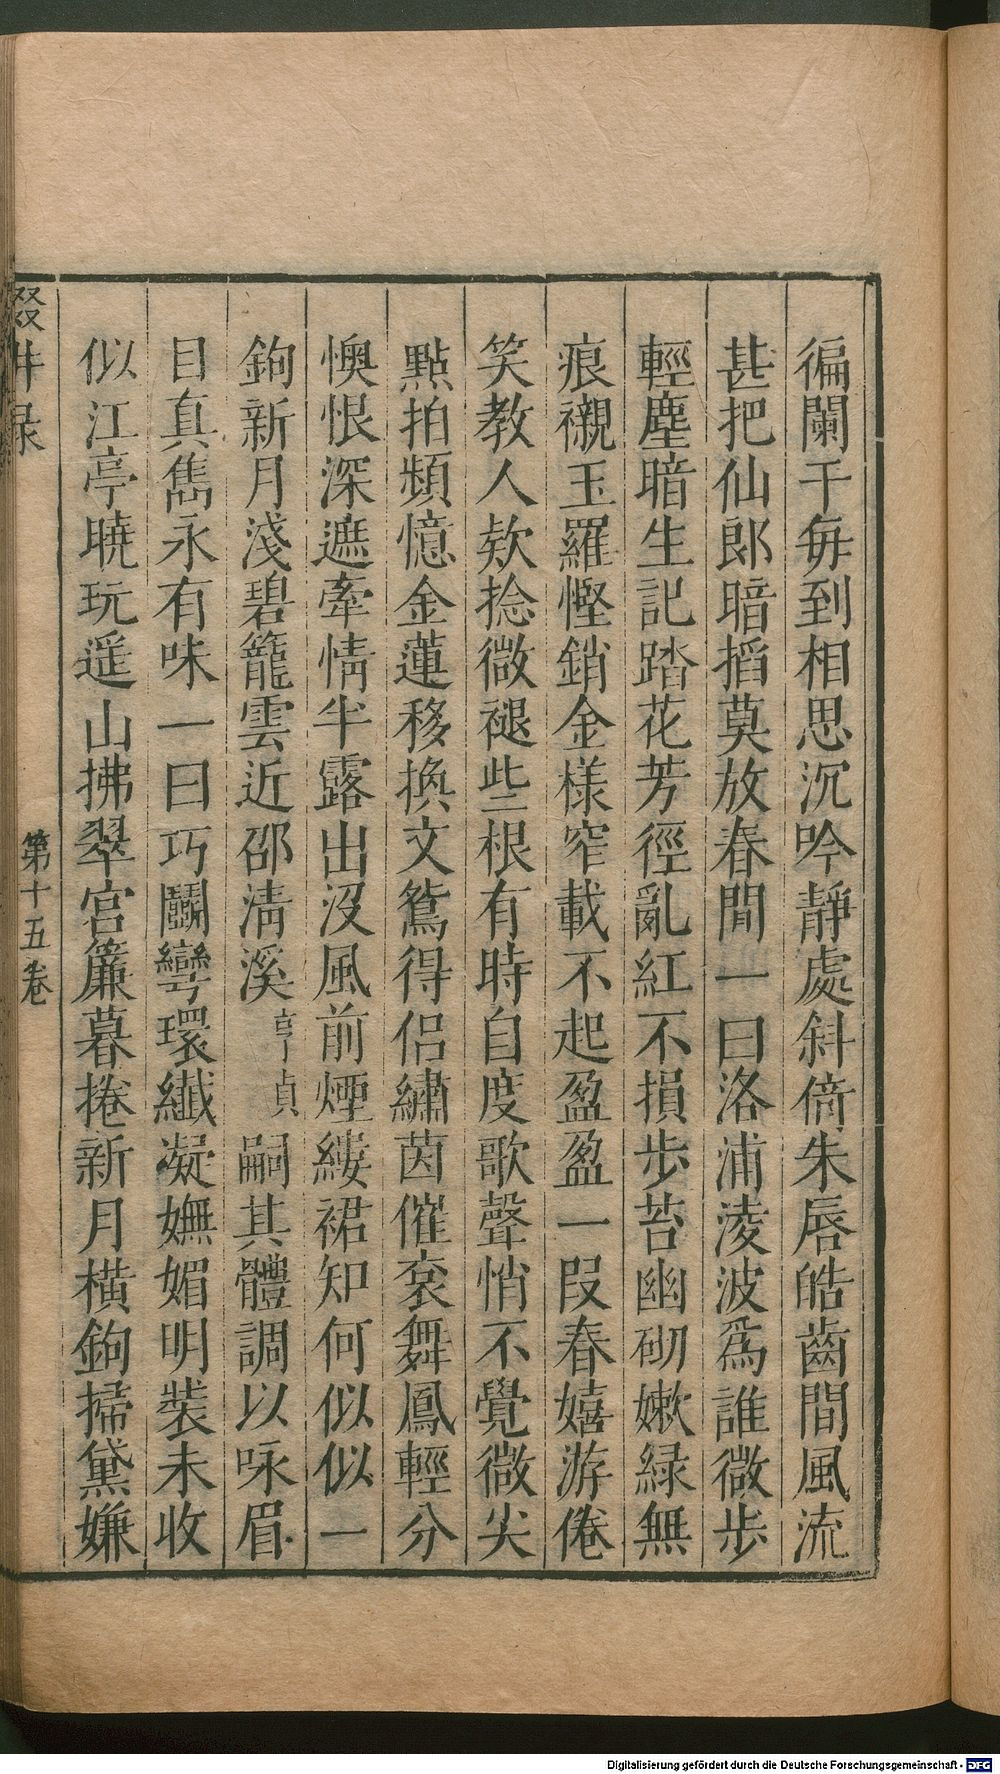 徧闌干毎到相思沉吟靜處斜倚朱唇皓齒間風流
甚把仙郎暗掐莫放春閒一曰洛浦淩波爲誰微步
輕塵暗生記踏花芳徑亂紅不損步苔幽砌嫩綠無
痕襯玉羅慳銷金樣窄載不起盈盈一叚春嬉游倦
笑教人欵捻微褪些根有時自度歌聲悄不覺微尖
點拍頻憶金蓮移換文鴛得侣繡茵催衮舞鳳輕分
懊恨深遮牽情半露出沒風前煙縷裙知何似似一
鉤新月淺碧籠雲近邵清溪亨貞嗣其體調以咏眉
目真雋永有味一曰巧鬬彎環纖凝嫵媚明裝未收
似江亭曉玩遥山拂翠宫簾暮捲新月橫鉤掃黛嫌
輟耕录
第十五卷
Digitalisierung gefördert durch die Deutsche Forschungsgemeinschaft - DFG